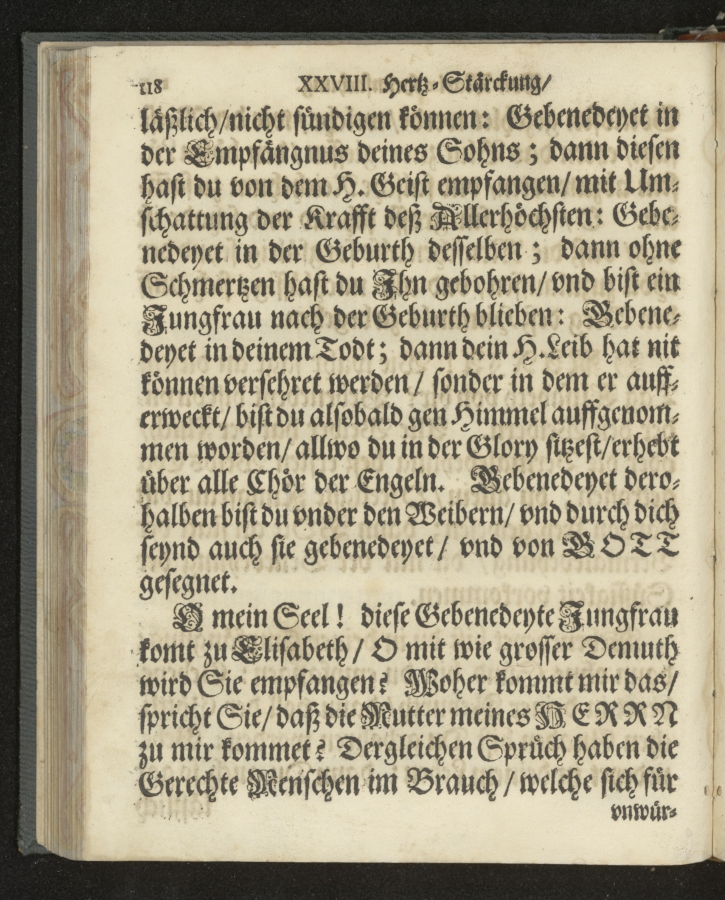 118 XXVIII. Hertz-Stärckung/
läßlich/nicht sündigen können: Gebenedeyet in
der Empfängnus deines Sohns; dann diesen
hast du von dem H. Geist empfangen/ mit Um-
schattung der Krafft deß Allerhöchsten: Gebe-
nedeyet in der Geburth desselben; dann ohne
Schmertzen hast du Ihn gebohren/ vnd bist ein
Jungfrau nach der Geburth blieben: Gebene-
deyet in deinem Todt; dann dein H. Leib hat nit
können versehret werden / sonder in dem er auff-
erweckt/ bist du alsobald gen Himmel auffgenom-
men worden/ allwo du in der Glory sitzest/erhebt
über alle Chör der Engeln. Gebenedeyet dero-
halben bist du vnder den Weibern/ vnd durch dich
seynd auch sie gebenedeyet / vnd von GOTT
gesegnet.
O mein Seel! diese Gebenedeyte Jungfrau
komt zu Elisabeth / O mit wie grosser Demuth
wird Sie empfangen? Woher kommt mir das/
spricht Sie/ daß die Mutter meines HERRN
zu mir kommet? Dergleichen Sprüch haben die
Gerechte Menschen im Brauch / welche sich für
vnwür-